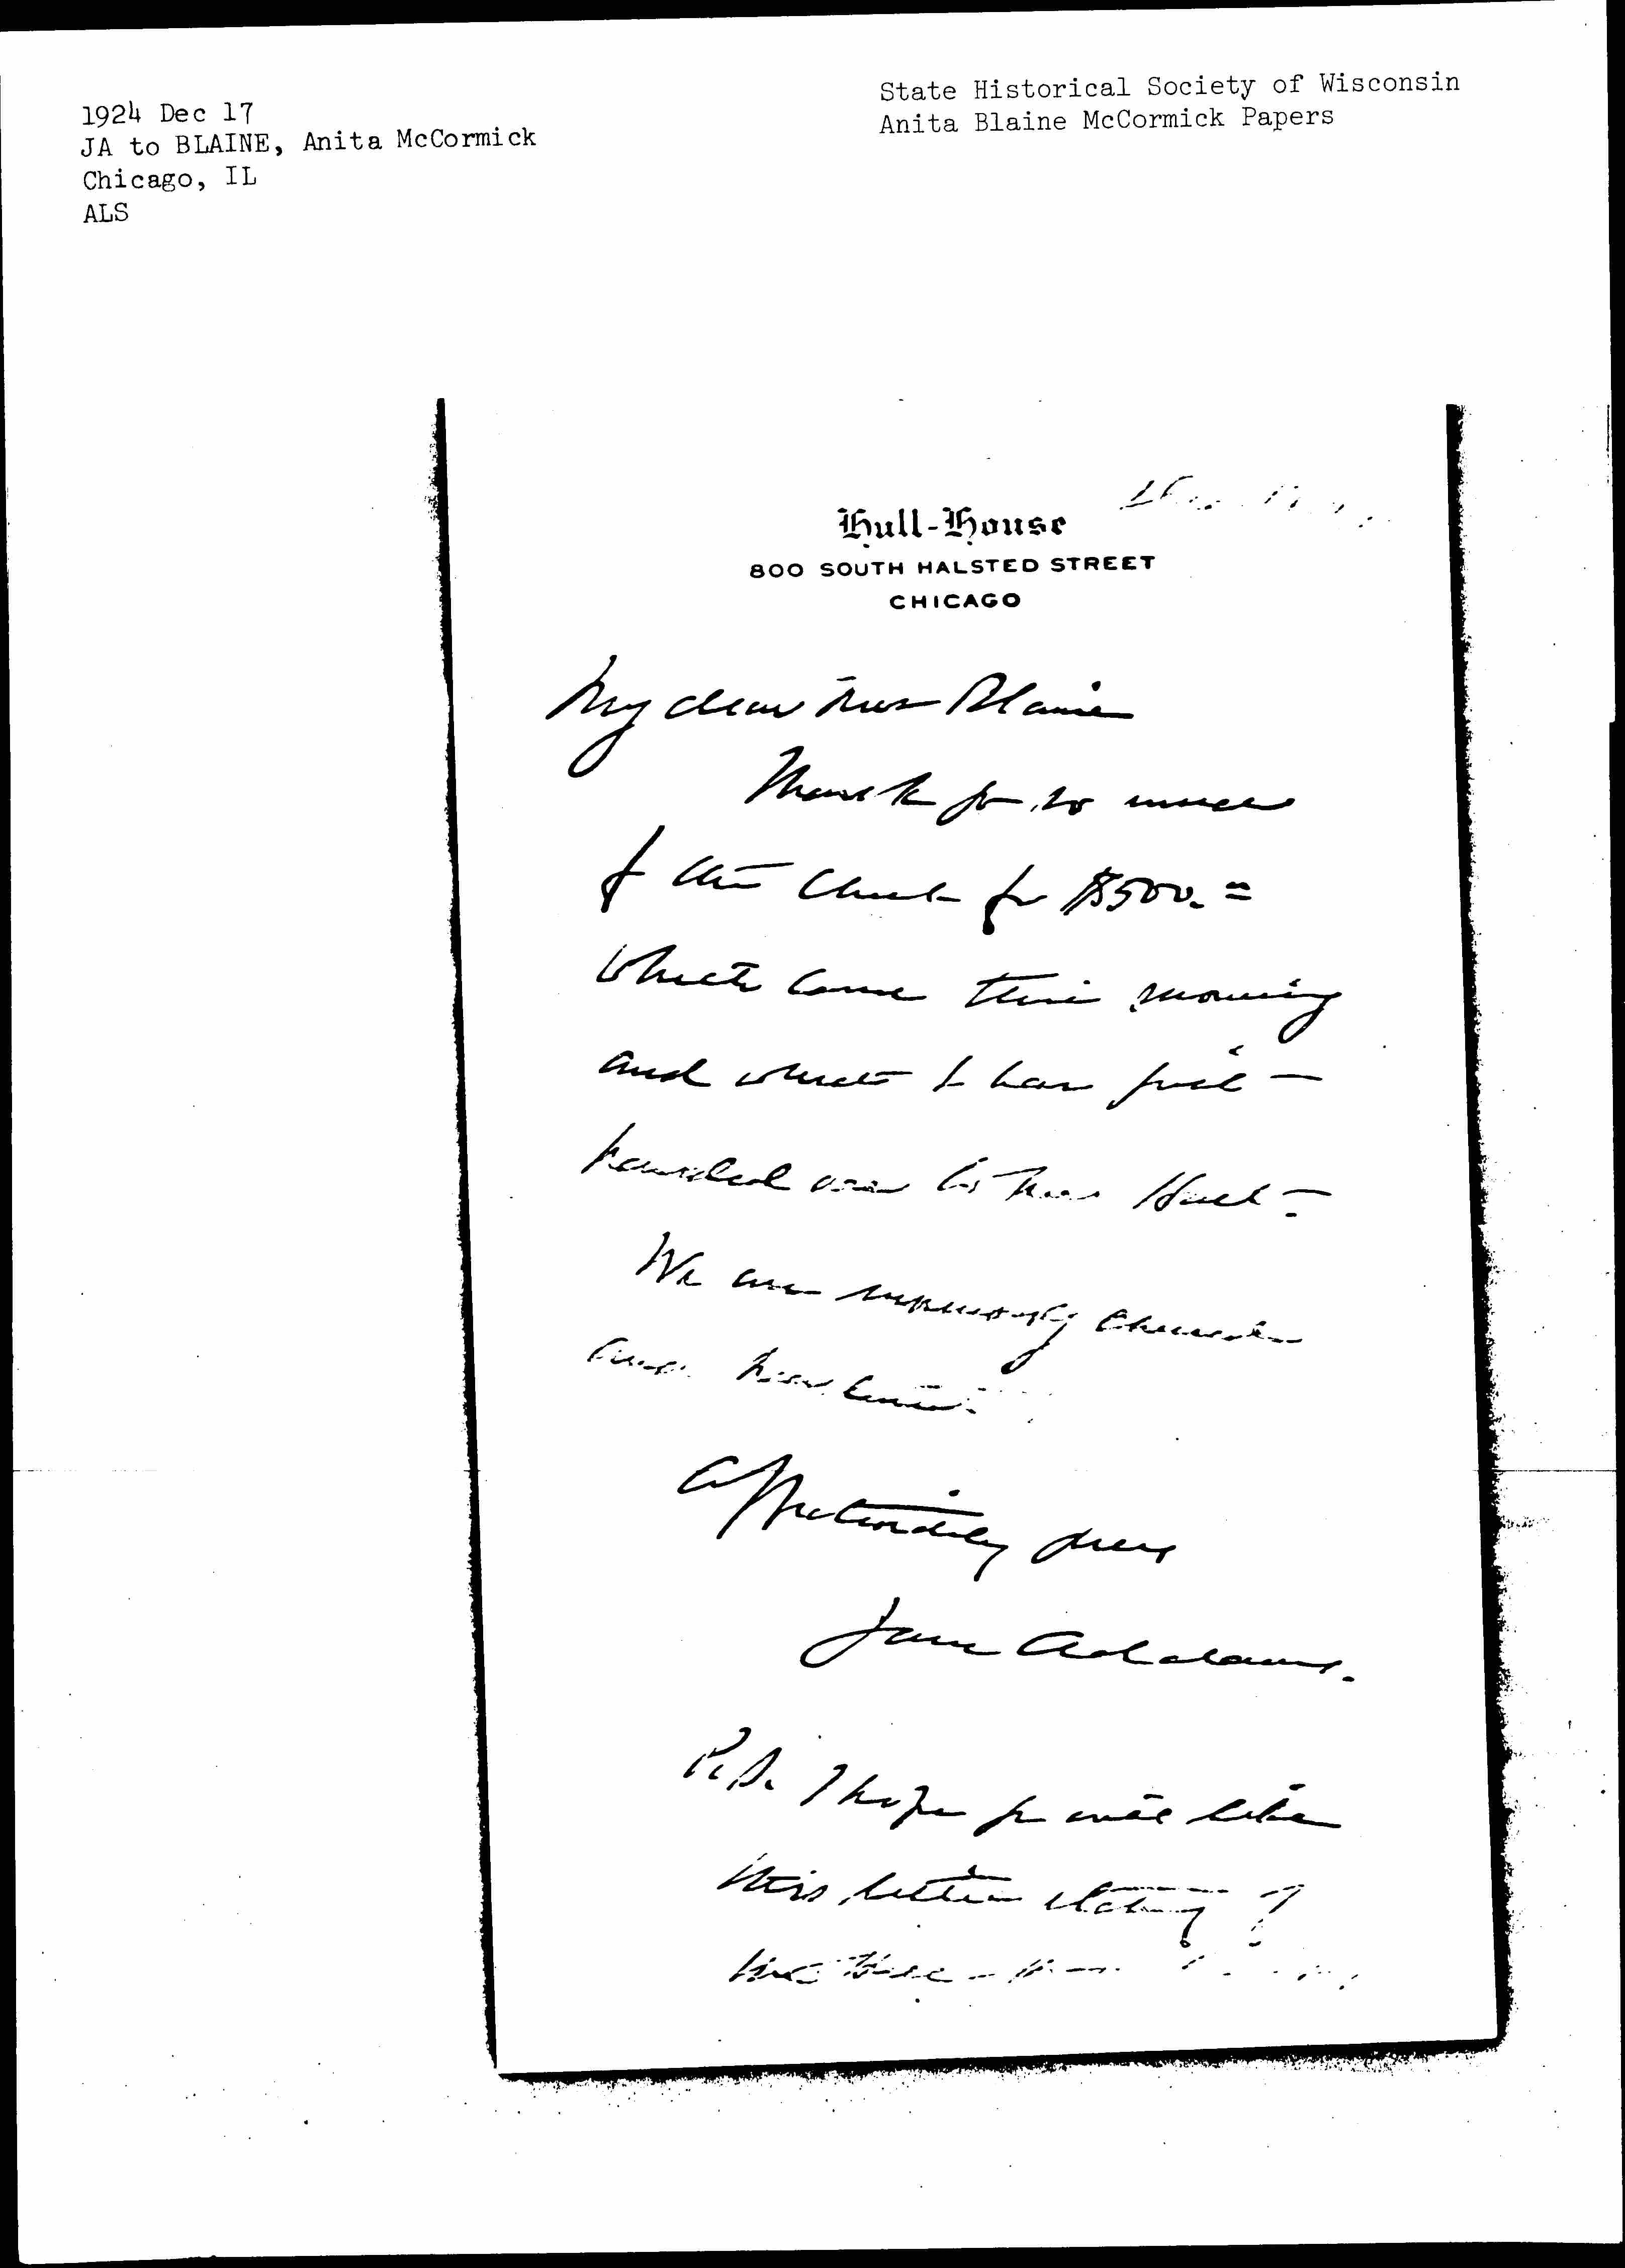 1924 Dec 17
JA to BLAINE, Anita McCormick
Chicago, IL
ALS
State Historical Society of Wisconsin
Anita Blaine McCormick Papers
Hull-House
800 SOUTH HALSTED STREET
CHICAGO
My dear Mrs Blaine
Thank you so much
for the check for $500.=
which came this morning
and which I have just
handed over to Miss
We are supremely
and
Affectionately yours
Jane Addams.
P.S. I hope you will like
this letter stating